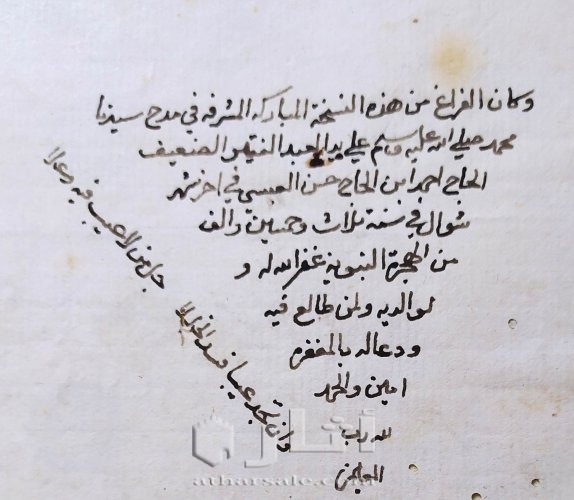 وكان الفراغ من هذه النسخة المباركه المشرفه في مدح سيدنا
محمد صلي الله عليه وسلم علي يد العبد الفقير الضعيف
الحاج احمد ابن الحاج حسن العبسي في اخر شهر
شوال في سنة ثلاث وخمسين والف
من الهجرة النبوية غفر الله له و
لوالديه ولمن طالع فيه
ودعاله بالمغفره
امين والحمد
لله رب
العلمين
وان تجد عيبا فسد الخللا
جل من لاعيب فيه وعلا
أثار
atharsale.com